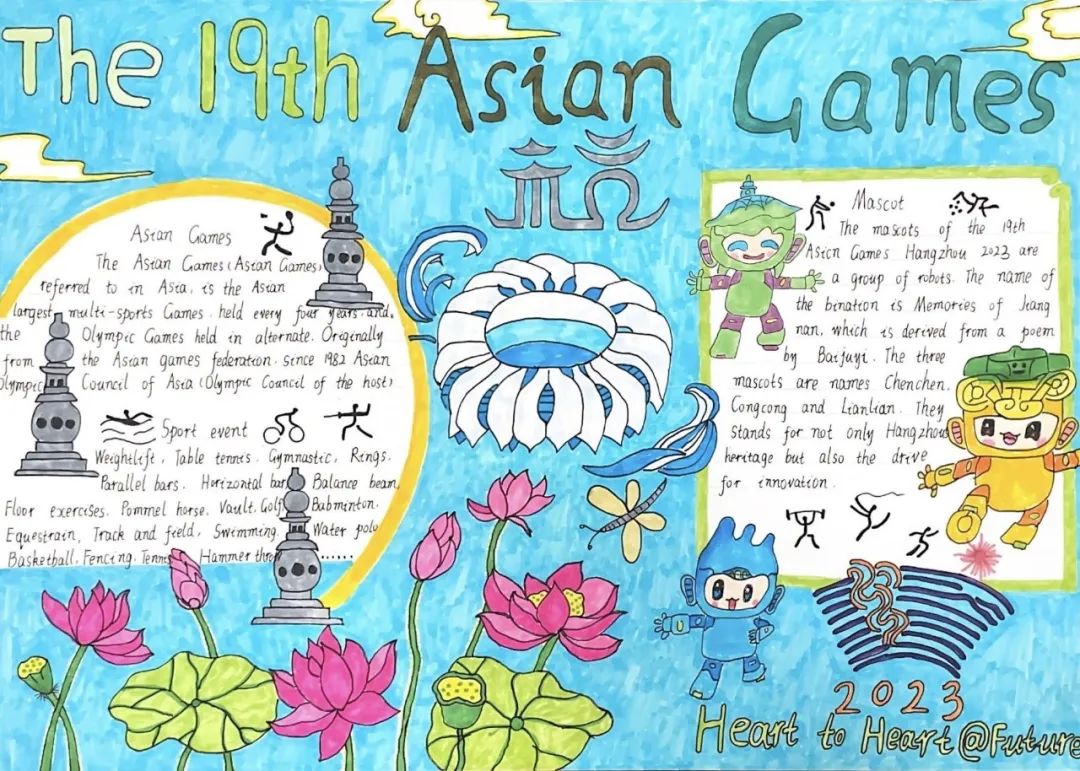 The 19th Asian Games
Asian Games
The Asian Games (Asian Games)
referred to in Asia, is the Asian
largest multi-sports Games, held every four years, and
the Olympic Games held in alternate. Originally
from the Asian games federation, since 1982 Asian
Olympic Council of Asia (Olympic Council of the host)
Sport event
Weightlift, Table tennis. Gymnastic, Rings.
Parallel bars. Horizontal bar, Balance beam,
Floor exercises. Pommel horse. Vault. Golf, Babminton.
Equestrain, Track and field, Swimming, Water polo
Basketball, Fencing, Tennis Hammer throw ......
Mascot
The mascots of the 19th
Asicn Games Hangzhou 2023 are
a group of robots. The name of
the bination is Memories of Jiang
nan, which is derived from a poem
by Baijuyi. The three
mascots are names Chenchen,
Congcong and Lianlian. They
Stands for not only Hangzhou
heritage but also the drive
for innovation.
2023
Heart to Heart @Future